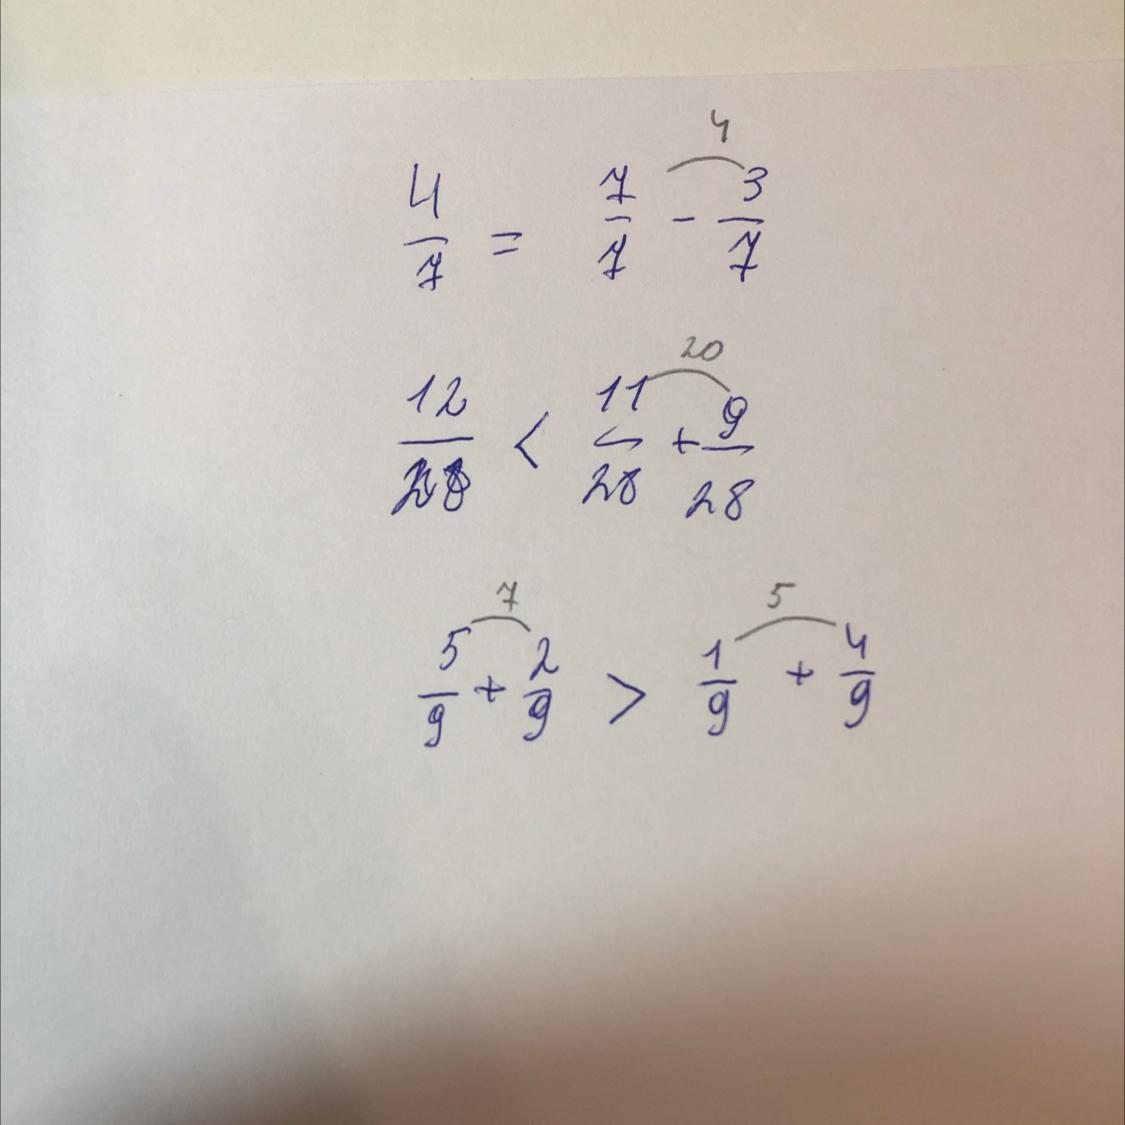 4
4/7 = 7/7 - 3/7
20
12/28 < 11/28 + 9/28
7 5
5/9 + 2/9 > 1/9 + 4/9